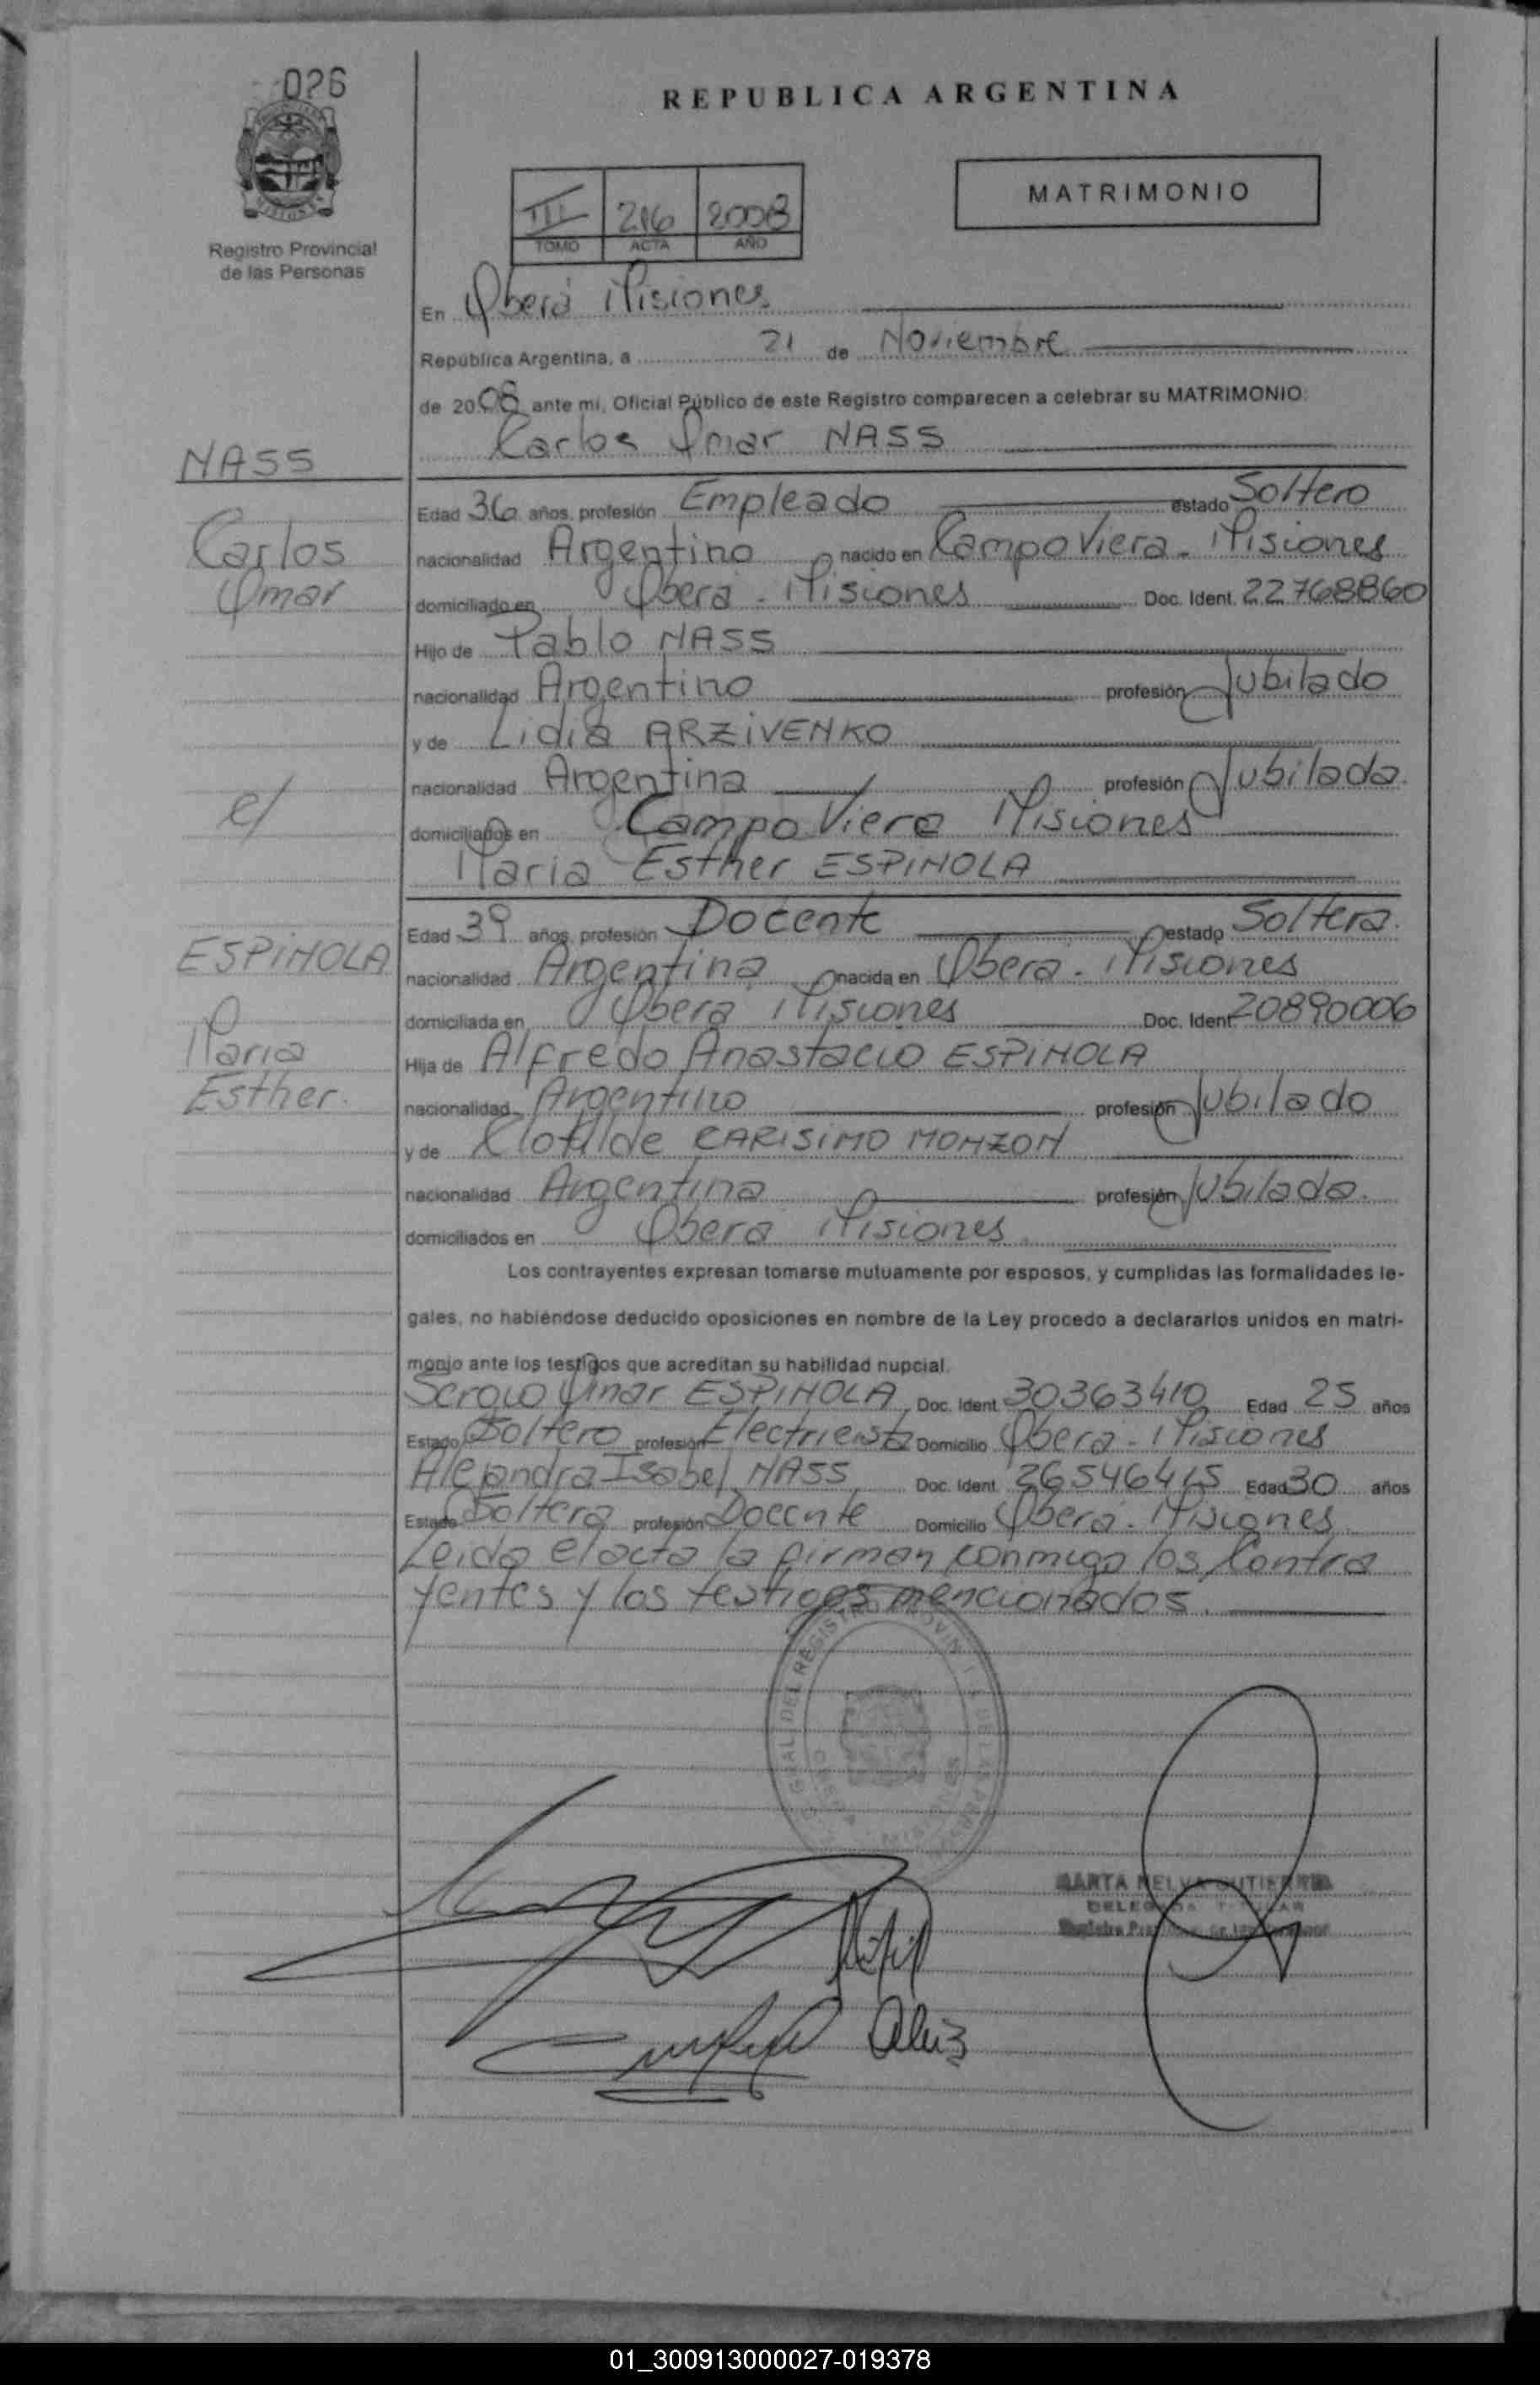 026
REPUBLICA ARGENTINA
MATRIMONIO
III 216 2008
TOMO ACTA AÑO
Registro Provincial
de las Personas
En Oberá Misiones
República Argentina, a 21 de Noviembre
de 2008 ante mi, Oficial Público de este Registro comparecen a celebrar su MATRIMONIO:
Carlos Omar NASS
NASS
Edad 36 años, profesión Empleado estado Soltero
Carlos
nacionalidad Argentino nacido en Campo Viera - Misiones
Omar
domiciliado en Oberá - Misiones Doc. Ident. 22768860
Hijo de Pablo NASS
nacionalidad Argentino profesión Jubilado
y de Lidia ARZIVENKO
nacionalidad Argentina profesión Jubilada.
c/
domiciliados en Campo Viera Misiones
Maria Esther ESPINOLA
Edad 39 años, profesión Docente estado Soltera.
ESPINOLA
nacionalidad Argentina nacida en Oberá - Misiones
domiciliada en Oberá Misiones Doc. Ident 20890006
Maria
Hija de Alfredo Anastacio ESPINOLA
Esther.
nacionalidad Argentino profesión Jubilado
y de Clotilde CARISIMO MONZON
nacionalidad Argentina profesión Jubilada.
domiciliados en Oberá Misiones
Los contrayentes expresan tomarse mutuamente por esposos, y cumplidas las formalidades le-
gales, no habiéndose deducido oposiciones en nombre de la Ley procedo a declararlos unidos en matri-
monio ante los testigos que acreditan su habilidad nupcial.
Sergio Omar ESPINOLA Doc. Ident. 30363410 Edad 25 años
Estado Soltero profesión Electricista Domicilio Oberá - Misiones
Alejandra Isabel NASS Doc. Ident. 26546415 Edad 30 años
Estado Soltera profesión Docente Domicilio Oberá - Misiones
Leida el acta la firman conmigo los Contra
yentes y los testigos mencionados.
01_300913000027-019378